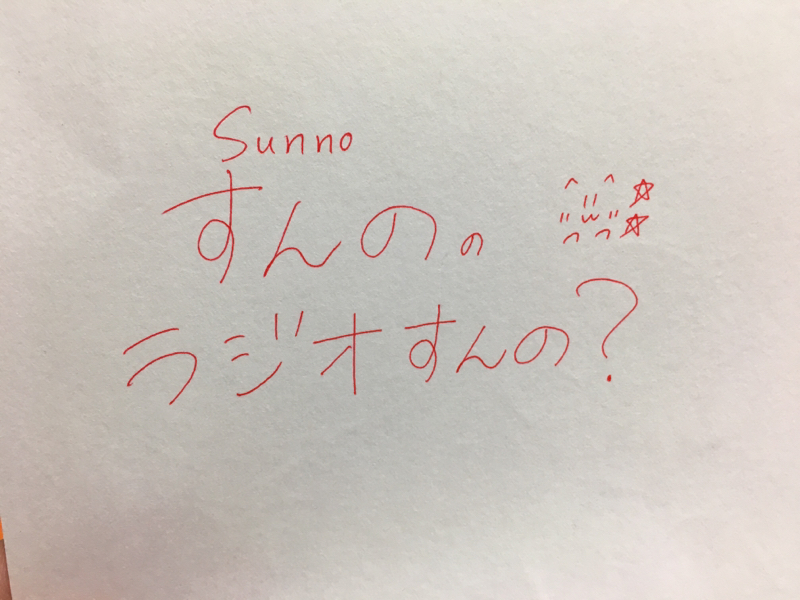 Sunno
すんのの
ラジオすんの?